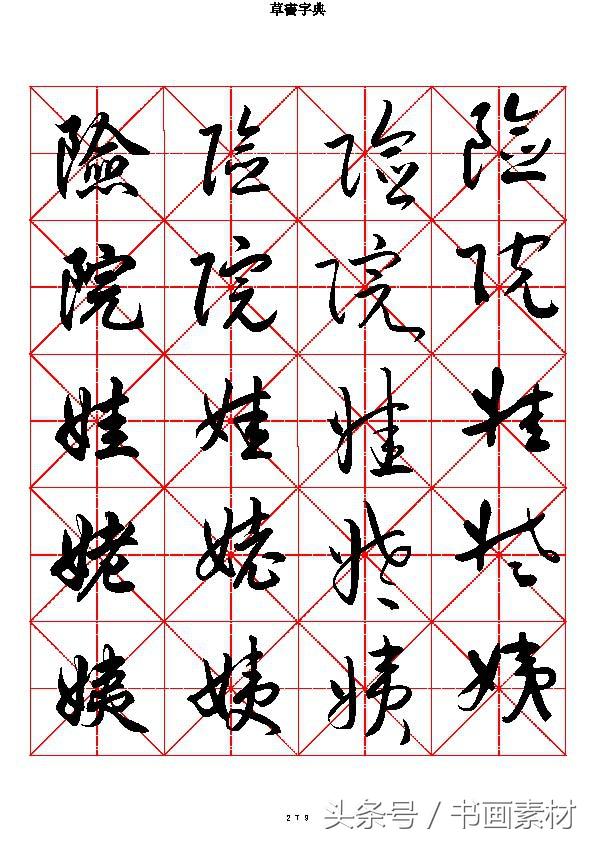 草書字典
險險险险
院院院院
娃娃娃娃
姥姥姥姥
姨姨姨姨
279
头条号 / 书画素材